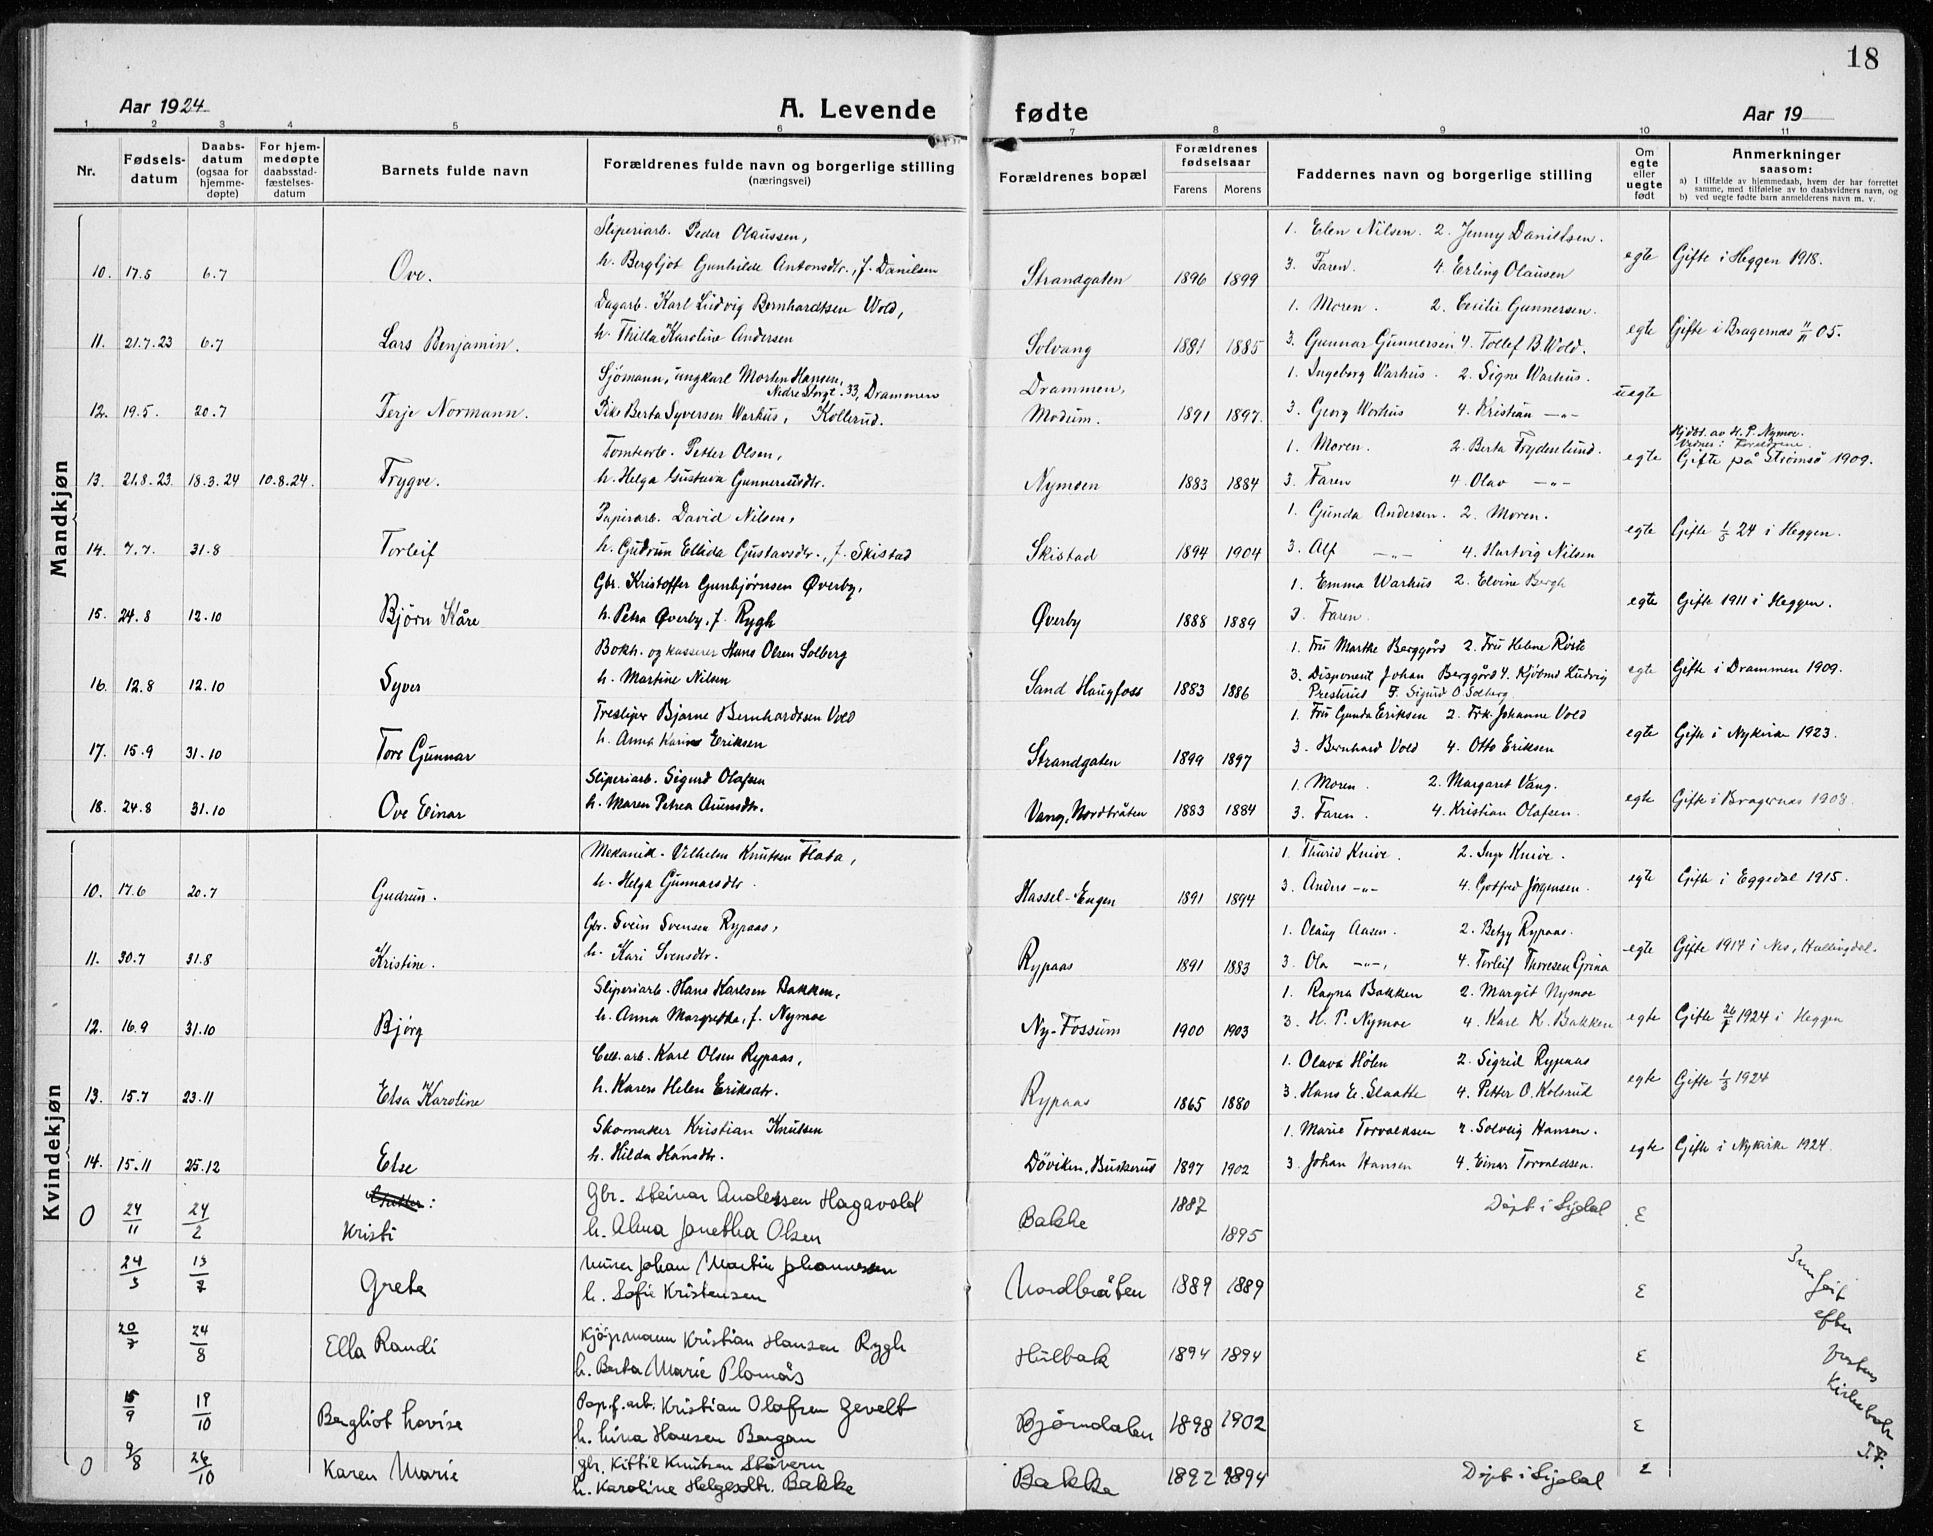 18
Aar 1924 A. Levende fødte Aar 19
1 2 3 4 5 6 7 8 9 10 11
Nr. Fødselsdatum Daabsdatum (ogsaa for hjemmedøpte) For hjemmedøpte daabsstadfæstelsesdatum Barnets fulde navn Forældrenes fulde navn og borgerlige stilling (næringsvei) Forældrenes bopæl Forældrenes fødselsaar Farens Morens Faddernes navn og borgerlige stilling Om egte eller uegte født Anmerkninger saasom: a) I tilfælde av hjemmedaab, hvem der har forrettet samme, med tilføielse av to daabsvidners navn, og b) ved uegte fødte barn anmelderens navn m. v.
Mandkjøn
Sliperiarb. Peder Olaussen, 1. Elen Nilsen. 2. Jenny Danielsen.
10. 17.5 6.7 Ove. h. Bergljot Gunhilde Antonsdtr., f. Danilsen Strandgaten 1896 1899 3. Faren. 4. Erling Olausen egte Gifte i Heggen 1918.
Dagarb. Karl Ludvig Bernhardtsen Wold, 1. Moren. 2. Cecilie Gunnersen.
11. 21.7.23 6.7 Lars Benjamin. h. Thilla Karoline Andersen Solvang 1881 1885 3. Gunnar Gunnersen 4. Tollef B. Wold. egte Gifte i Bragernæs 11/11 05.
Sjömann, ungkarl Morten Hansen, Nedre Storgt. 33, Drammen Drammen, 1. Ingeborg Warhus. 2. Signe Warhus.
12. 19.5. 20.7 Terje Normann. Pike Berta Syversen Warhus, Kollerud. Modum. 1891 1897. 3. Georg Warhus 4. Kristian -"- uegte
Tomtearb. Petter Olsen, 1. Moren. 2. Berta Frydenlund. Hjdbt. av H. P. Nymoe. Vidner: Forældrene.
13. 21.8.23. 18.3.24 10.8.24. Trygve. h. Helga Gustava Gunneriusdtr. Nymoen 1883 1884 3. Faren 4. Olav -"- egte Gifte på Strømsö 1909.
Papirarb. David Nilsen, 1. Gunda Andersen. 2. Moren.
14. 7.7. 31.8 Torleif h. Gudrun Ellida Gustavsdtr., f. Skistad Skistad 1894 1904 3. Alf -"- 4. Hartvig Nilsen egte Gifte 1/5 24 i Heggen.
Gbr. Kristoffer Gunbjørnsen Øverby, 1. Emma Warhus 2. Elvine Bergh
15. 24.8 12.10 Bjørn Kåre h. Petra Øverby, f. Rygh Øverby 1888 1889 3. Faren. egte Gifte 1911 i Heggen.
Bokh. og kasserer Hans Olsen Solberg 1. Fru Marthe Berggörd 2. Fru Helene Röste
16. 12.8 12.10 Syver h. Martine Nilsen Sand Haugfoss 1883 1886 3. Disponent Johan Berggörd 4. Kjöbmd Ludvig Presterud F. Sigurd O. Solberg. egte Gifte i Drammen 1909.
Tresliper Bjarne Bernhardtsen Vold 1. Fru Gunda Eriksen 2. Frk. Johanne Vold
17. 15.9 31.10 Tore Gunnar h. Anna Karine Eriksen Strandgaten 1899 1897 3. Bernhard Vold 4. Otto Eriksen egte Gifte i Nykirke 1923.
Sliperiarb. Sigurd Olafsen 1. Moren. 2. Margaret Vang.
18. 24.8 31.10 Ove Einar h. Maren Petrea Arunsdtr. Vang, Nordbråten 1883 1884 3. Faren. 4. Kristian Olafsen. egte Gifte i Bragernæs 1908.
Kvindekjøn
Mekanik. Vilhelm Knutsen Flata, 1. Thurid Knive. 2. Inga Knive.
10. 17.6 20.7 Gudrun. h. Helga Gunnarsdtr. Hassel-Engen 1891 1894 3. Anders -"- 4. Gotfred Jörgensen. egte Gifte i Eggedal 1915.
Gbr. Svein Svensen Rypaas, 1. Olaug Aasen. 2. Betzy Rypaas.
11. 30.7 31.8 Kristine. h. Kari Svensdtr. Rypaas 1891 1883 3. Ola -"-, 4. Torleif Thoresen Grina egte Gifte 1914 i Nes, Hallingdal.
Sliperiarb. Hans Karlsen Bakken, 1. Ragna Bakken 2. Margit Nymoe
12. 16.9 31.10 Bjørg h. Anna Margrethe, f. Nymoe Ny-Fossum 1900 1903 3. H. P. Nymoe 4. Karl K. Bakken egte Gifte 26/7 1924 i Heggen
Cell. arb. Karl Olsen Rypaas, 1. Olava Hølen 2. Sigrid Rypaas
13. 15.7 23.11 Elsa Karoline h. Karen Helen Eriksdtr. Rypaas 1865 1880 3. Hans E. Slaatte 4. Petter O. Kolsrud egte Gifte 1/3 1924
Skomaker Kristian Knutsen 1. Marie Torvaldsen 2. Solveig Hansen.
14. 15.11 25.12 Else h. Hilda Hansdtr. Döviken, Buskerud 1897 1902 3. Johan Hansen 4. Einar Torvaldsen. egte Gifte i Nykirke 1924.
Gbr. Steinar Andersen Hagavold 1887 Döpt i Sigdal
O 24/11 24/2 Kristi h. Alma Janetha Olsen Bakke 1895 E
24/3 13/7 Grete Murer Johan Martin Johannesen
h. Sofie Kristensen Nordbråten 1889 1889 E
20/7 24/8 Ella Randi Kjöpmann Kristian Hansen Rygh
h. Berta Marie Plomås Hulbak 1894 1894 E
15/9 19/10 Bergliot Lovise Pap.f.arb. Kristian Olafsen Gevelt
h. Lina Hansen Bergan Björndalen 1898 1902 E
O 9/8 26/10 Karen Marie gbr. Kittil Knutsen Stövern
h. Karoline Helgesdtr. Bakke Bakke 1892 1894 Döpt i Sigdal E
efter
Kirkebok